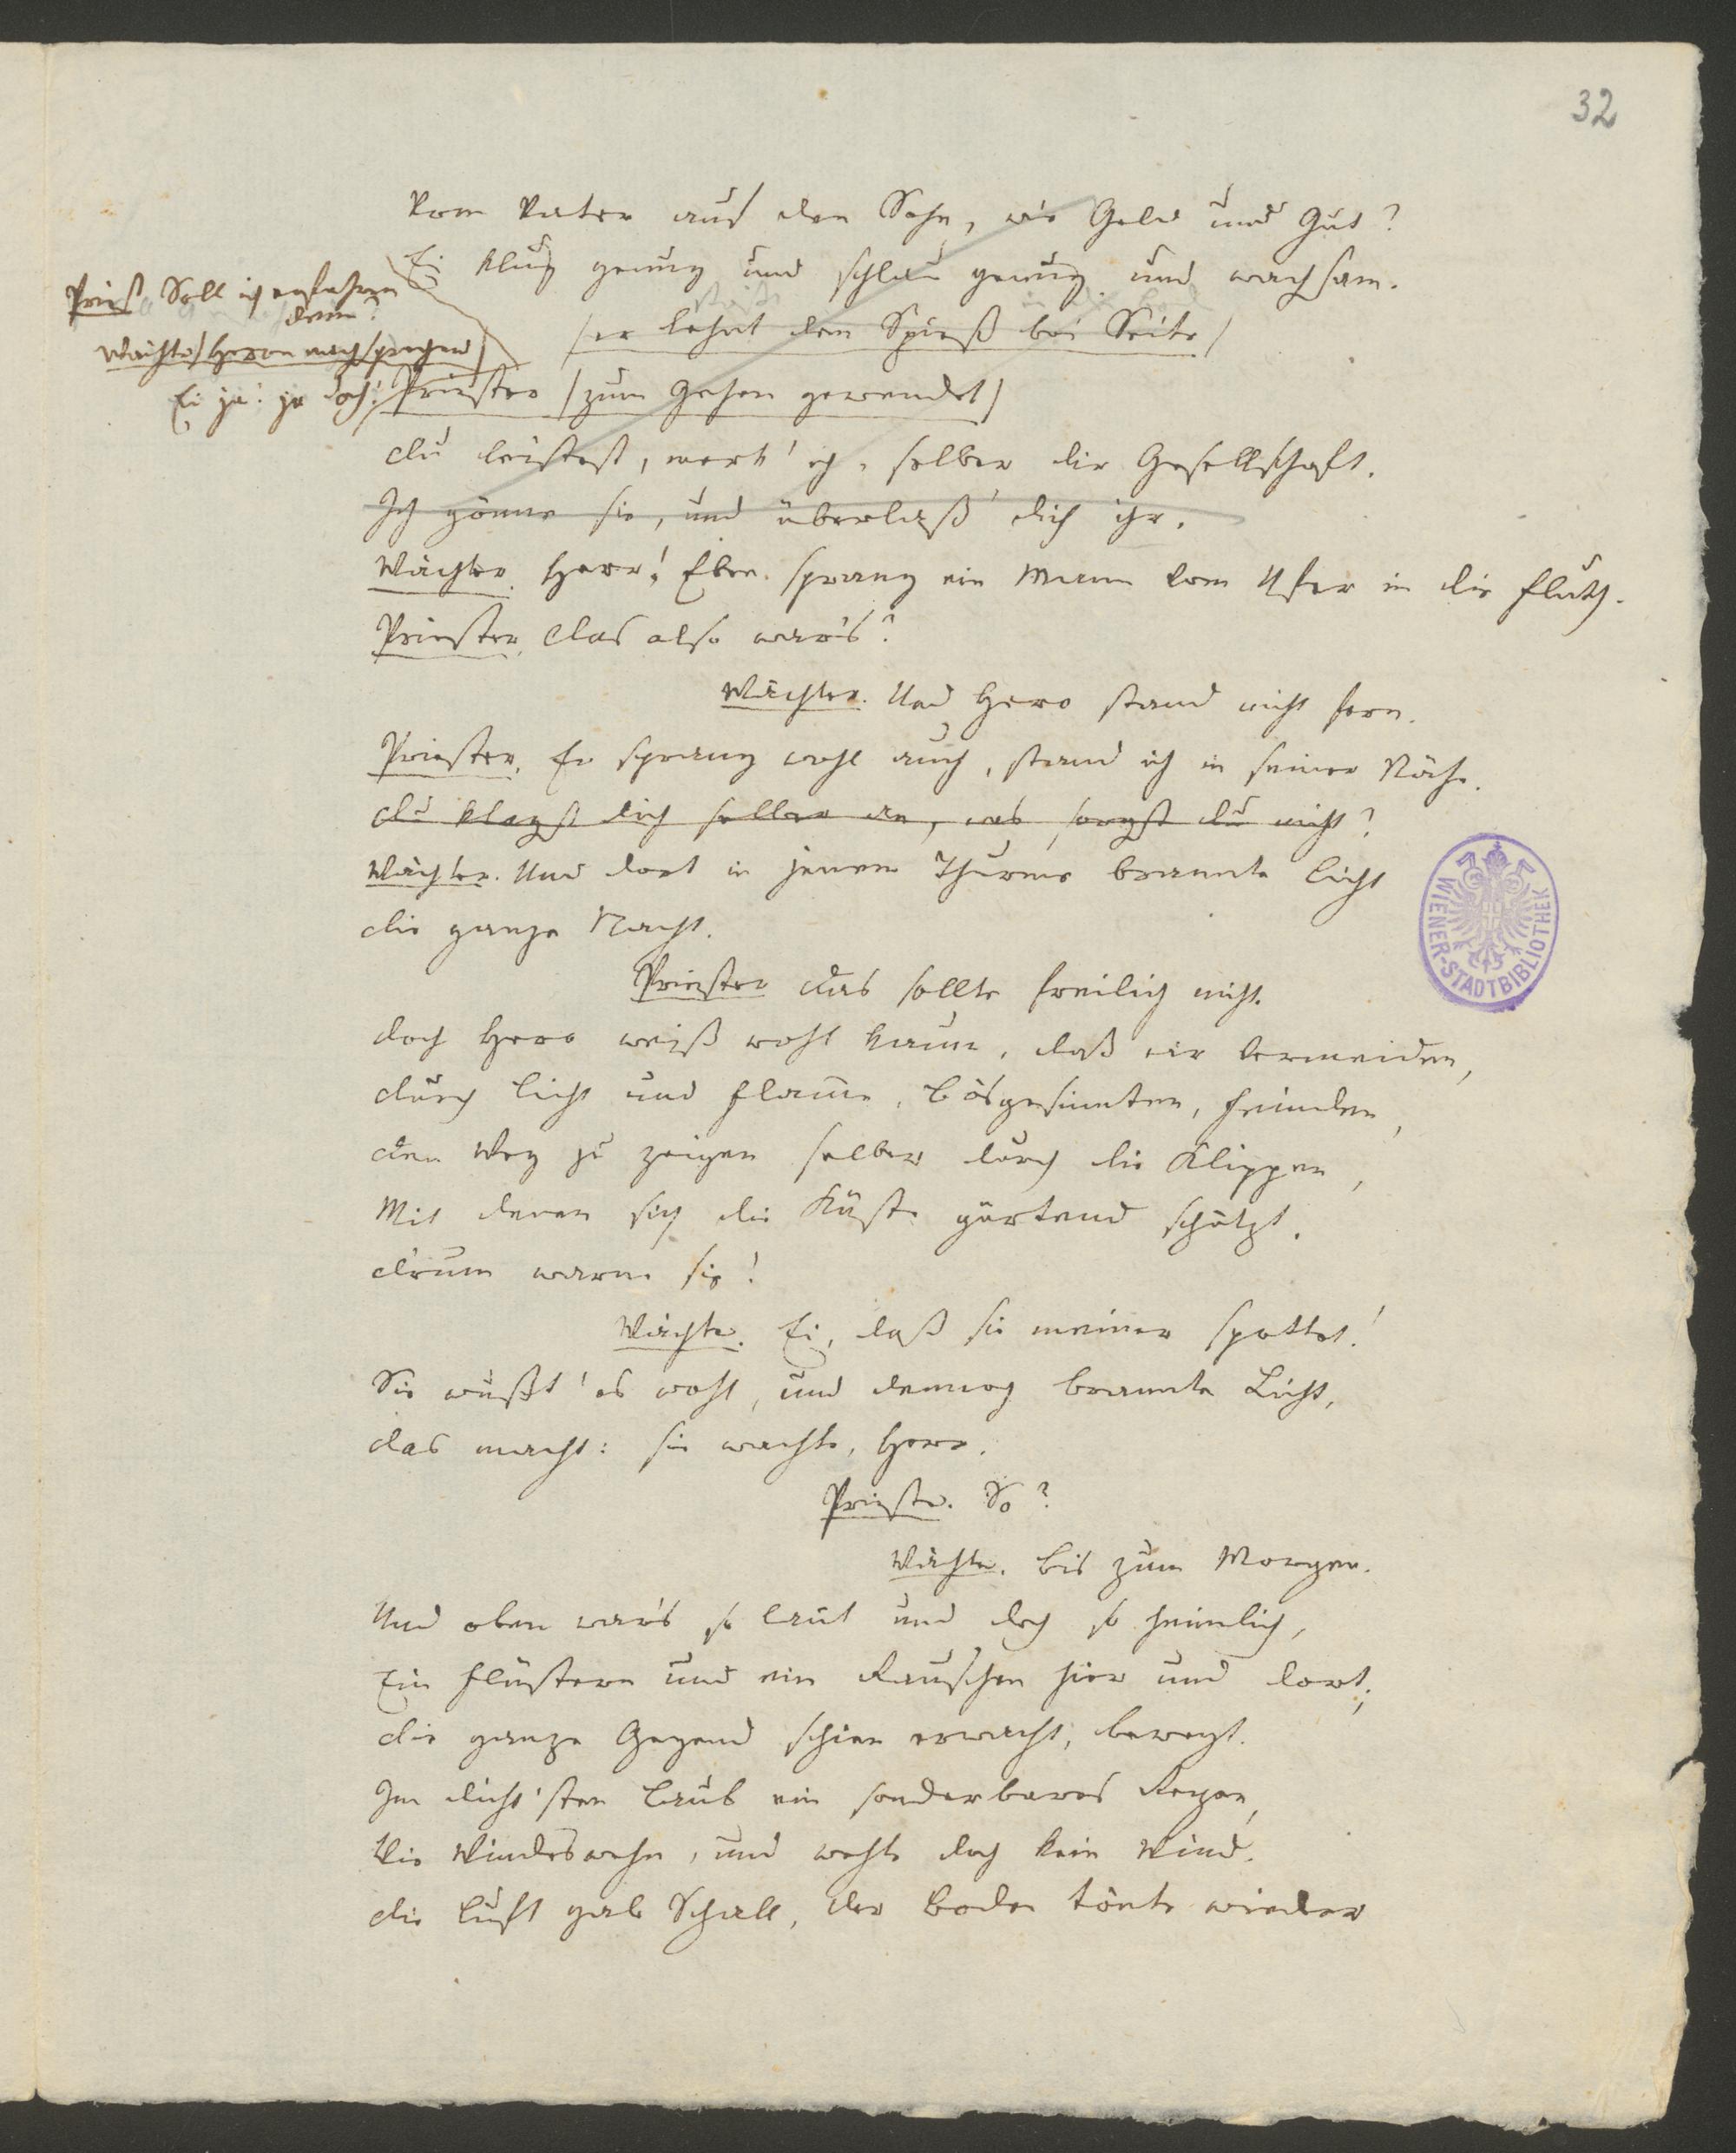 32
Vom Vater auf den Sohn, wie Geld und Gut?
Ei klug genug und schlau genug und wachsam.
Priest Soll ich erfahren
denn?
(er lehnt den Spieß bei Seite)
Wächter (Heron nachsprechend)
Ei ja! ja doch!
Priester (zum Gehen gewendet)
Du leistest, merk' ich, selber dir Gesellschaft.
Ich gönne sie, und überlaß' dich ihr.
Wächter. Herr! Eben sprang ein Mann vom Ufer in die Fluth.
Priester. Das also war's?
Wächter. Und Hero stand nicht fern.
Priester. Er sprang wohl auch, stand ich in seiner Nähe.
Du klagst dich selber an, was sorgst du nicht?
Wächter. Und dort in jenem Thurme brannte Licht
Die ganze Nacht.
Priester Das sollte freilich nicht.
Doch Hero weiß wohl kaum, daß wir vermeiden,
Durch Licht und Flamme, bösgesinnten, Feinden,
Den Weg zu zeigen selber durch die Klippen,
Mit denen sich die Küste gürtend schützt.
Drum warne sie!
Wächter. Ei, daß sie meiner spottet!
Sie wußt' es wohl, und dennoch brannte Licht,
Das macht: sie wachte, Herr.
Priester. So?
Wächter. Bis zum Morgen.
Und oben war's so laut und doch so heimlich,
Ein Flüstern und ein Rauschen hier und dort;
Die ganze Gegend schien erwacht, bewegt.
Im dicht'sten Laub ein sonderbares Regen,
Wie Windeswehn, und wehte doch kein Wind.
Die Luft gab Schall, der Boden tönte wieder
WIENER-STADTBIBLIOTHEK